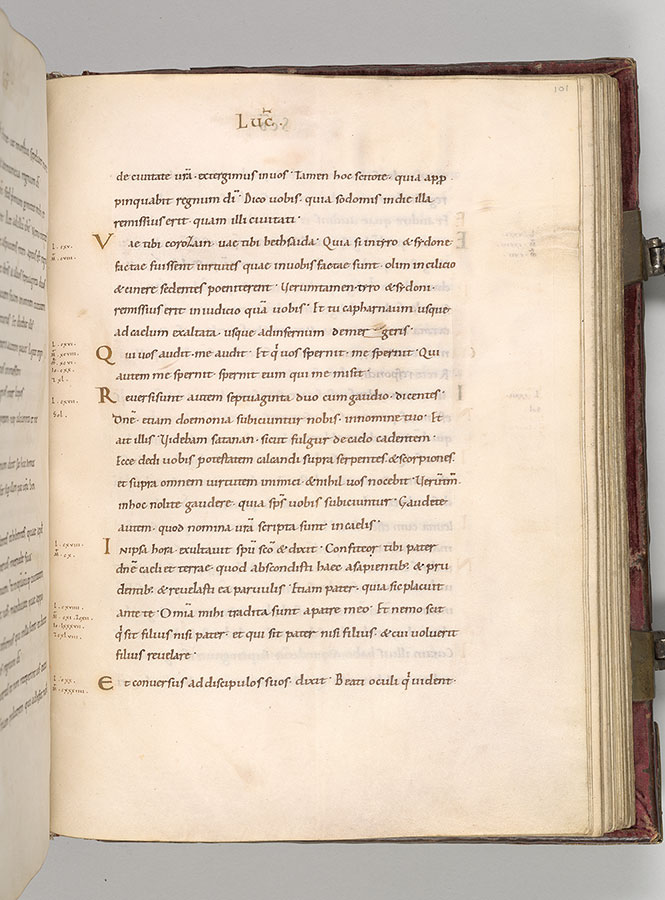 101
Luc̄.
de ciuitate urā · extergimus inuos · Tamen hoc scitote · quia app
pinquabit regnum dī · Dico uobis · quia sodomis indie illa
remissius erit · quam illi ciuitati ·
Vae tibi corozain · uae tibi bethsaida · Quia si intyro & sydone
factae fuissent uirtutes quae inuobis factae sunt · olim incilicio
& cinere sedentes poeniterent · Verumtamen tyro & sydoni ·
remissius erit iniudicio quā uobis · Et tu capharnaum usque
adcaelum exaltata · usque adinfernum demergeris ·
Qui uos audit · me audit · Et q̇ uos spernit · me spernit · Qui
autem me spernit · spernit eum qui me misit ·
Reuersisunt autem septuaginta duo cumgaudio · dicentes ·
Dn̄e · etiam doemonia subiciuntur nobis · innomine tuo · Et
ait illis · Videbam satanan · sicut fulgur decaelo cadentem ·
Ecce dedi uobis potestatem calcandi supra serpentes · & scorpiones ·
et supra omnem uirtutem inimici · & nihil uos nocebit · Verūtm̄
inhoc nolite gaudere · quia sps̄ uobis subiciuntur · Gaudete
autem · quod nomina urā scripta sunt incaelis ·
Inipsa hora · exultauit spū scō & dixit · Confiteor tibi pater
dn̄e caeli et terrae · quod abscondisti haec asapientib; & pru
dentib; & reuelasti ea paruulis · Etiam pater · quia sic placuit
ante te · Omīa mihi tradita sunt apatre meo · Et nemo scit
q̇ sit filius nisi pater · et qui sit pater nisi filius · & cui uoluerit
filius reuelare ·
Et conuersus addiscipulos suos · dixit · Beati oculi q̇ uident ·